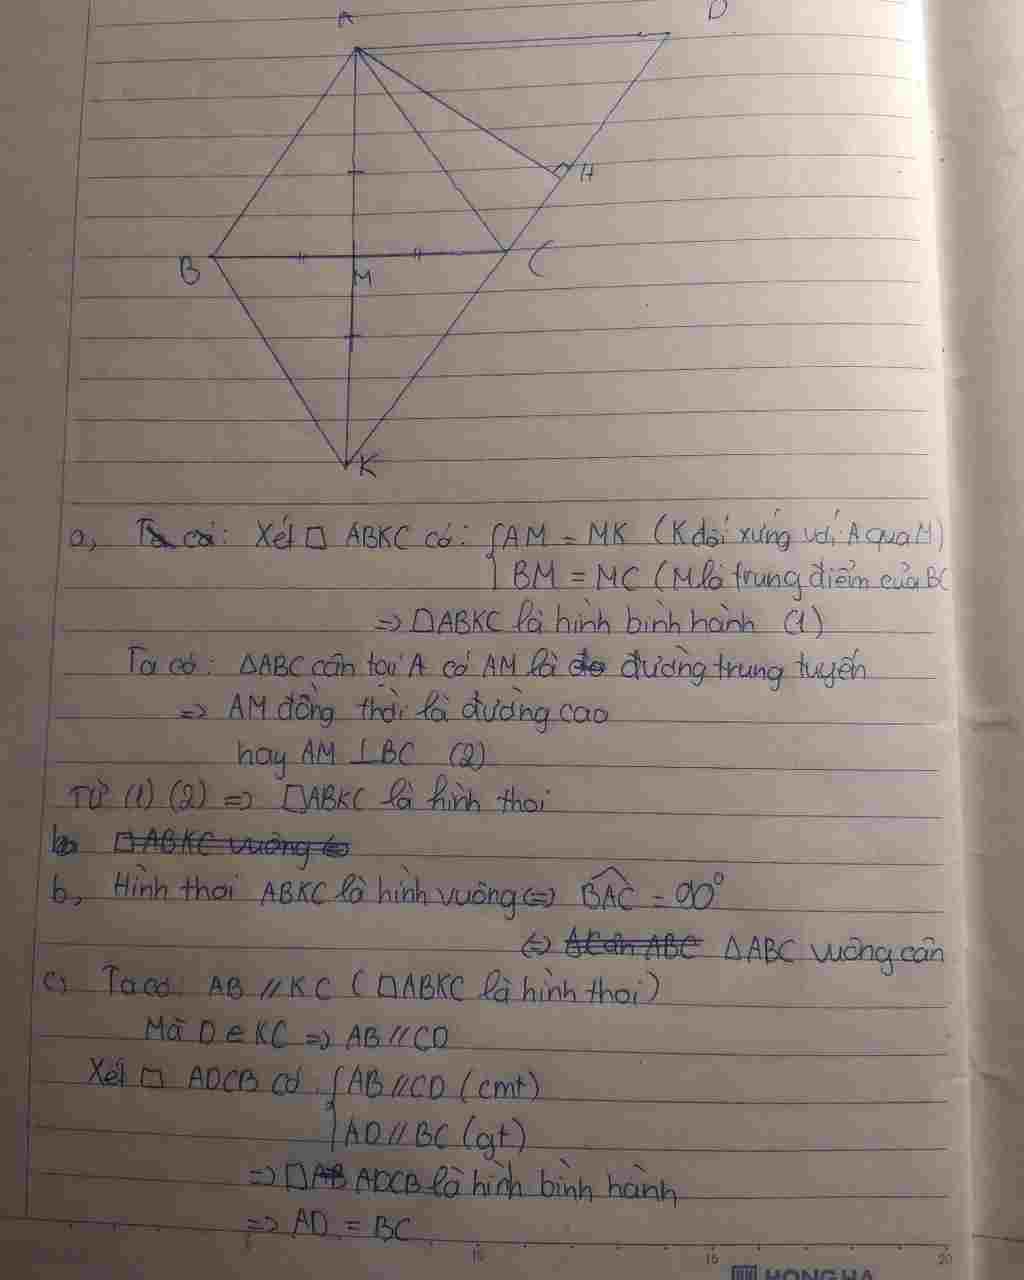 A
D
H
B
M
C
K
a, Ta có: Xét □ ABKC có: { AM = MK (K đối xứng với A qua M)
BM = MC (M là trung điểm của BC
=> □ABKC là hình bình hành (1)
Ta có: ΔABC cân tại A có AM là đo đường trung tuyến
=> AM đồng thời là đường cao
hay AM ⊥ BC (2)
Từ (1) (2) => □ABKC là hình thoi
b, □ABKC vuông <=>
b, Hình thoi ABKC là hình vuông <=> BAC = 90°
<=> ΔABC vuông cân
c) Ta có: AB // KC (□ABKC là hình thoi)
Mà D ∈ KC => AB // CD
Xét □ ADCB có { AB // CD (cmt)
AD // BC (gt)
=> □AB ADCB là hình bình hành
=> AD = BC
10 15 20
HONG HA